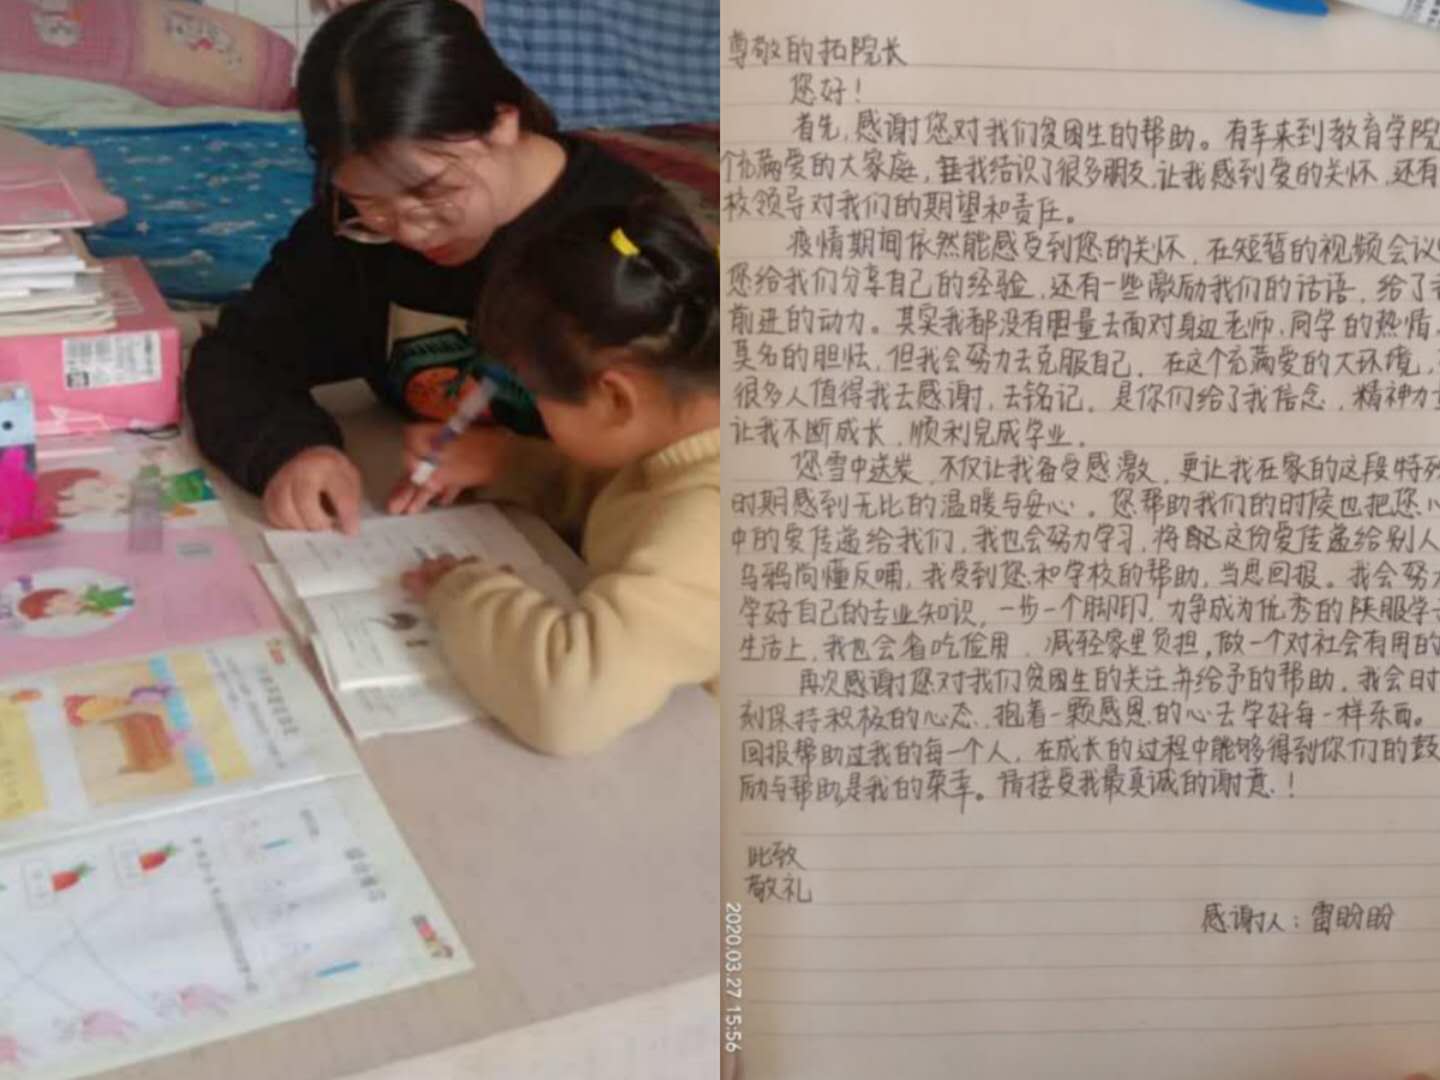 尊敬的拓院长
您好！
首先，感谢您对我们贫困生的帮助。有幸来到教育学院
个充满爱的大家庭，让我结识了很多朋友，让我感到爱的关怀，还有
校领导对我们的期望和责任。
疫情期间依然能感受到您的关怀，在短暂的视频会议
您给我们分享自己的经验，还有一些激励我们的话语，给了
前进的动力。其实我都没有胆量去面对身边老师，同学的热情，
莫名的胆怯，但我会努力去克服自己，在这个充满爱的大环境，
很多人值得我去感谢，去铭记，是你们给了我信念，精神力
让我不断成长，顺利完成学业。
您雪中送炭，不仅让我备受感激，更让我在家的这段特殊
时期感到无比的温暖与安心。您帮助我们的时候也把您心
中的爱传递给我们，我也会努力学习，将这份爱传递给别人
乌鸦尚懂反哺，我受到您和学校的帮助，当思回报。我会努
学好自己的专业知识，一步一个脚印，力争成为优秀的陕服学
生活上，我也会省吃俭用，减轻家里负担，做一个对社会有用的
再次感谢您对我们贫困生的关注并给予的帮助，我会时
刻保持积极的心态，抱着一颗感恩的心去学好每一样东西。
回报帮助过我的每一个人，在成长的过程中能够得到你们的鼓
励与帮助是我的荣幸。请接受我最真诚的谢意！
此致
敬礼
感谢人：雷盼盼
2020.03.27 15:56